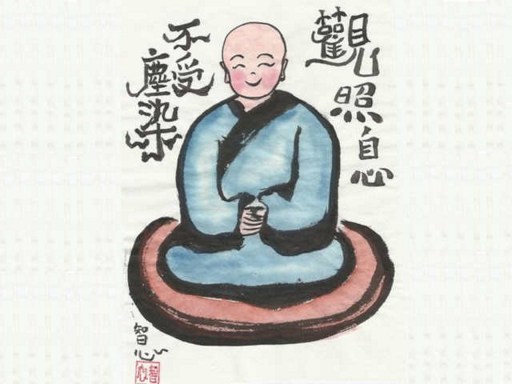 觀照自心
不受
塵染
智心